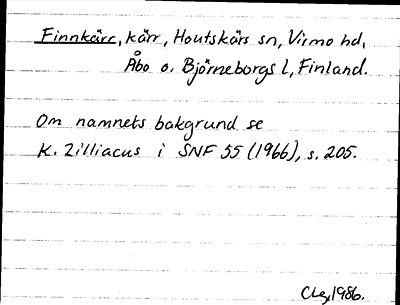 Finnkärr, kärr, Houtskärs sn, Virmo hd,
Åbo o. Björneborgs l, Finland.
Om namnets bakgrund se
K. Zilliacus i SNF 55 (1966), s. 205.
CLg, 1986.